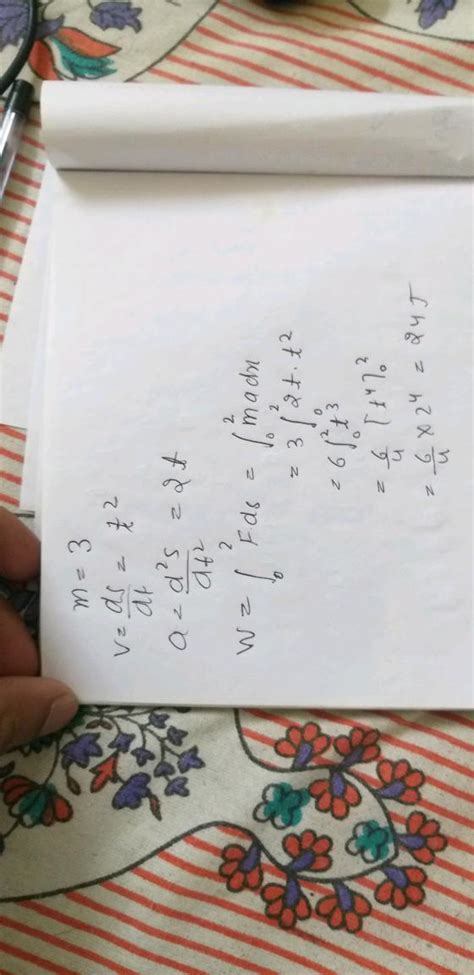 m = 3
v = ds/dt = t²
a = d²s/dt² = 2t
W = ∫₀² Fds = ∫₀² madx
= 3 ∫₀² 2t·t²
= 6 ∫₀² t³
= 6/4 [t⁴]₀²
= 6/4 × 2⁴ = 24J